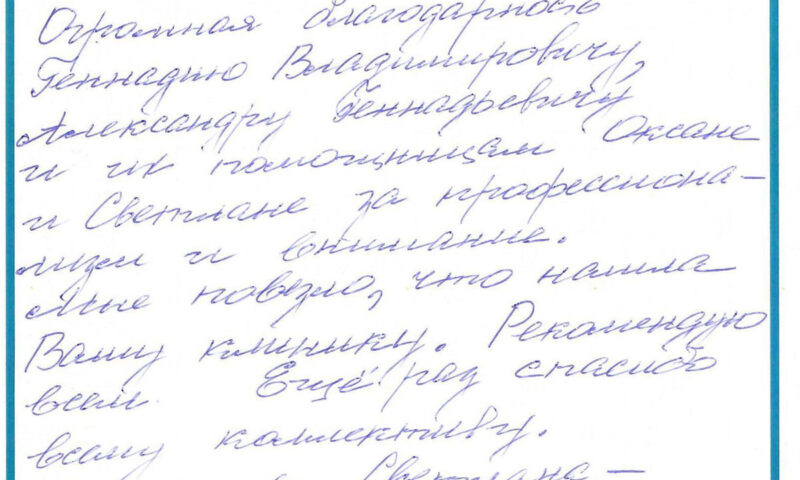 Огромная благодарность
Геннадию Владимировичу,
Александру Геннадьевичу
и их помощницам Оксане
и Светлане за профессиона-
лизм и внимание.
Мне повезло, что нашла
Вашу клинику. Рекомендую
всем Ещё раз спасибо
всему коллективу.
Светлана —